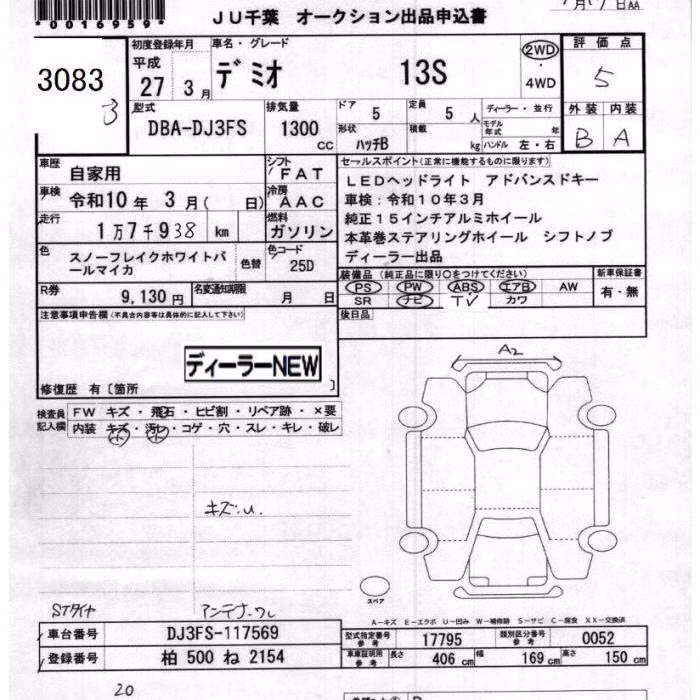 *0016959*
JU千葉 オークション出品申込書
AA
3083
3
初度登録年月
平成
27 3月
車名・グレード
デミオ 13S
2WD
・
4WD
評価点
5
外装 内装
B A
型式
DBA-DJ3FS
排気量
1300
cc
ドア
5
定員
5 人
ディーラー・並行
モデル年式 年
形状
ハッチB
積載
kg
ハンドル 左・右
車歴
自家用
シフト
FAT
車検
令和10年 3月( 日)
冷房
AAC
走行
1万7千938 km
燃料
ガソリン
色
スノーフレイクホワイトパールマイカ
色替
色コード
25D
R券
9,130円
名変通知期限
月 日
セールスポイント(正常に機能するものに限ります)
LEDヘッドライト アドバンスドキー
車検:令和10年3月
純正15インチアルミホイール
本革巻ステアリングホイール シフトノブ
ディーラー出品
装備品(純正品に限り○をつけてください)
PS PW ABS エアB AW
SR ナビ TV カワ
新車保証書
有・無
後日品
注意事項申告欄(不具合内容等は具体的に記入して下さい)
ディーラーNEW
修復歴 有〔箇所 〕
検査員記入欄
FW キズ・飛石・ヒビ割・リペア跡・×要
内装 キズ・汚レ・コゲ・穴・スレ・キレ・破レ
小 小
キズ.U.
A2
スペア
STタイヤ アンテナ
A-キズ E-エクボ U-凹み W-補修跡 S-サビ C-腐食 XX-交換済
車台番号 DJ3FS-117569
登録番号 柏 500 ね 2154
型式指定番号参考 17795
類別区分番号参考 0052
車庫証明用参考 長さ 406cm 幅 169cm 高さ 150cm
20